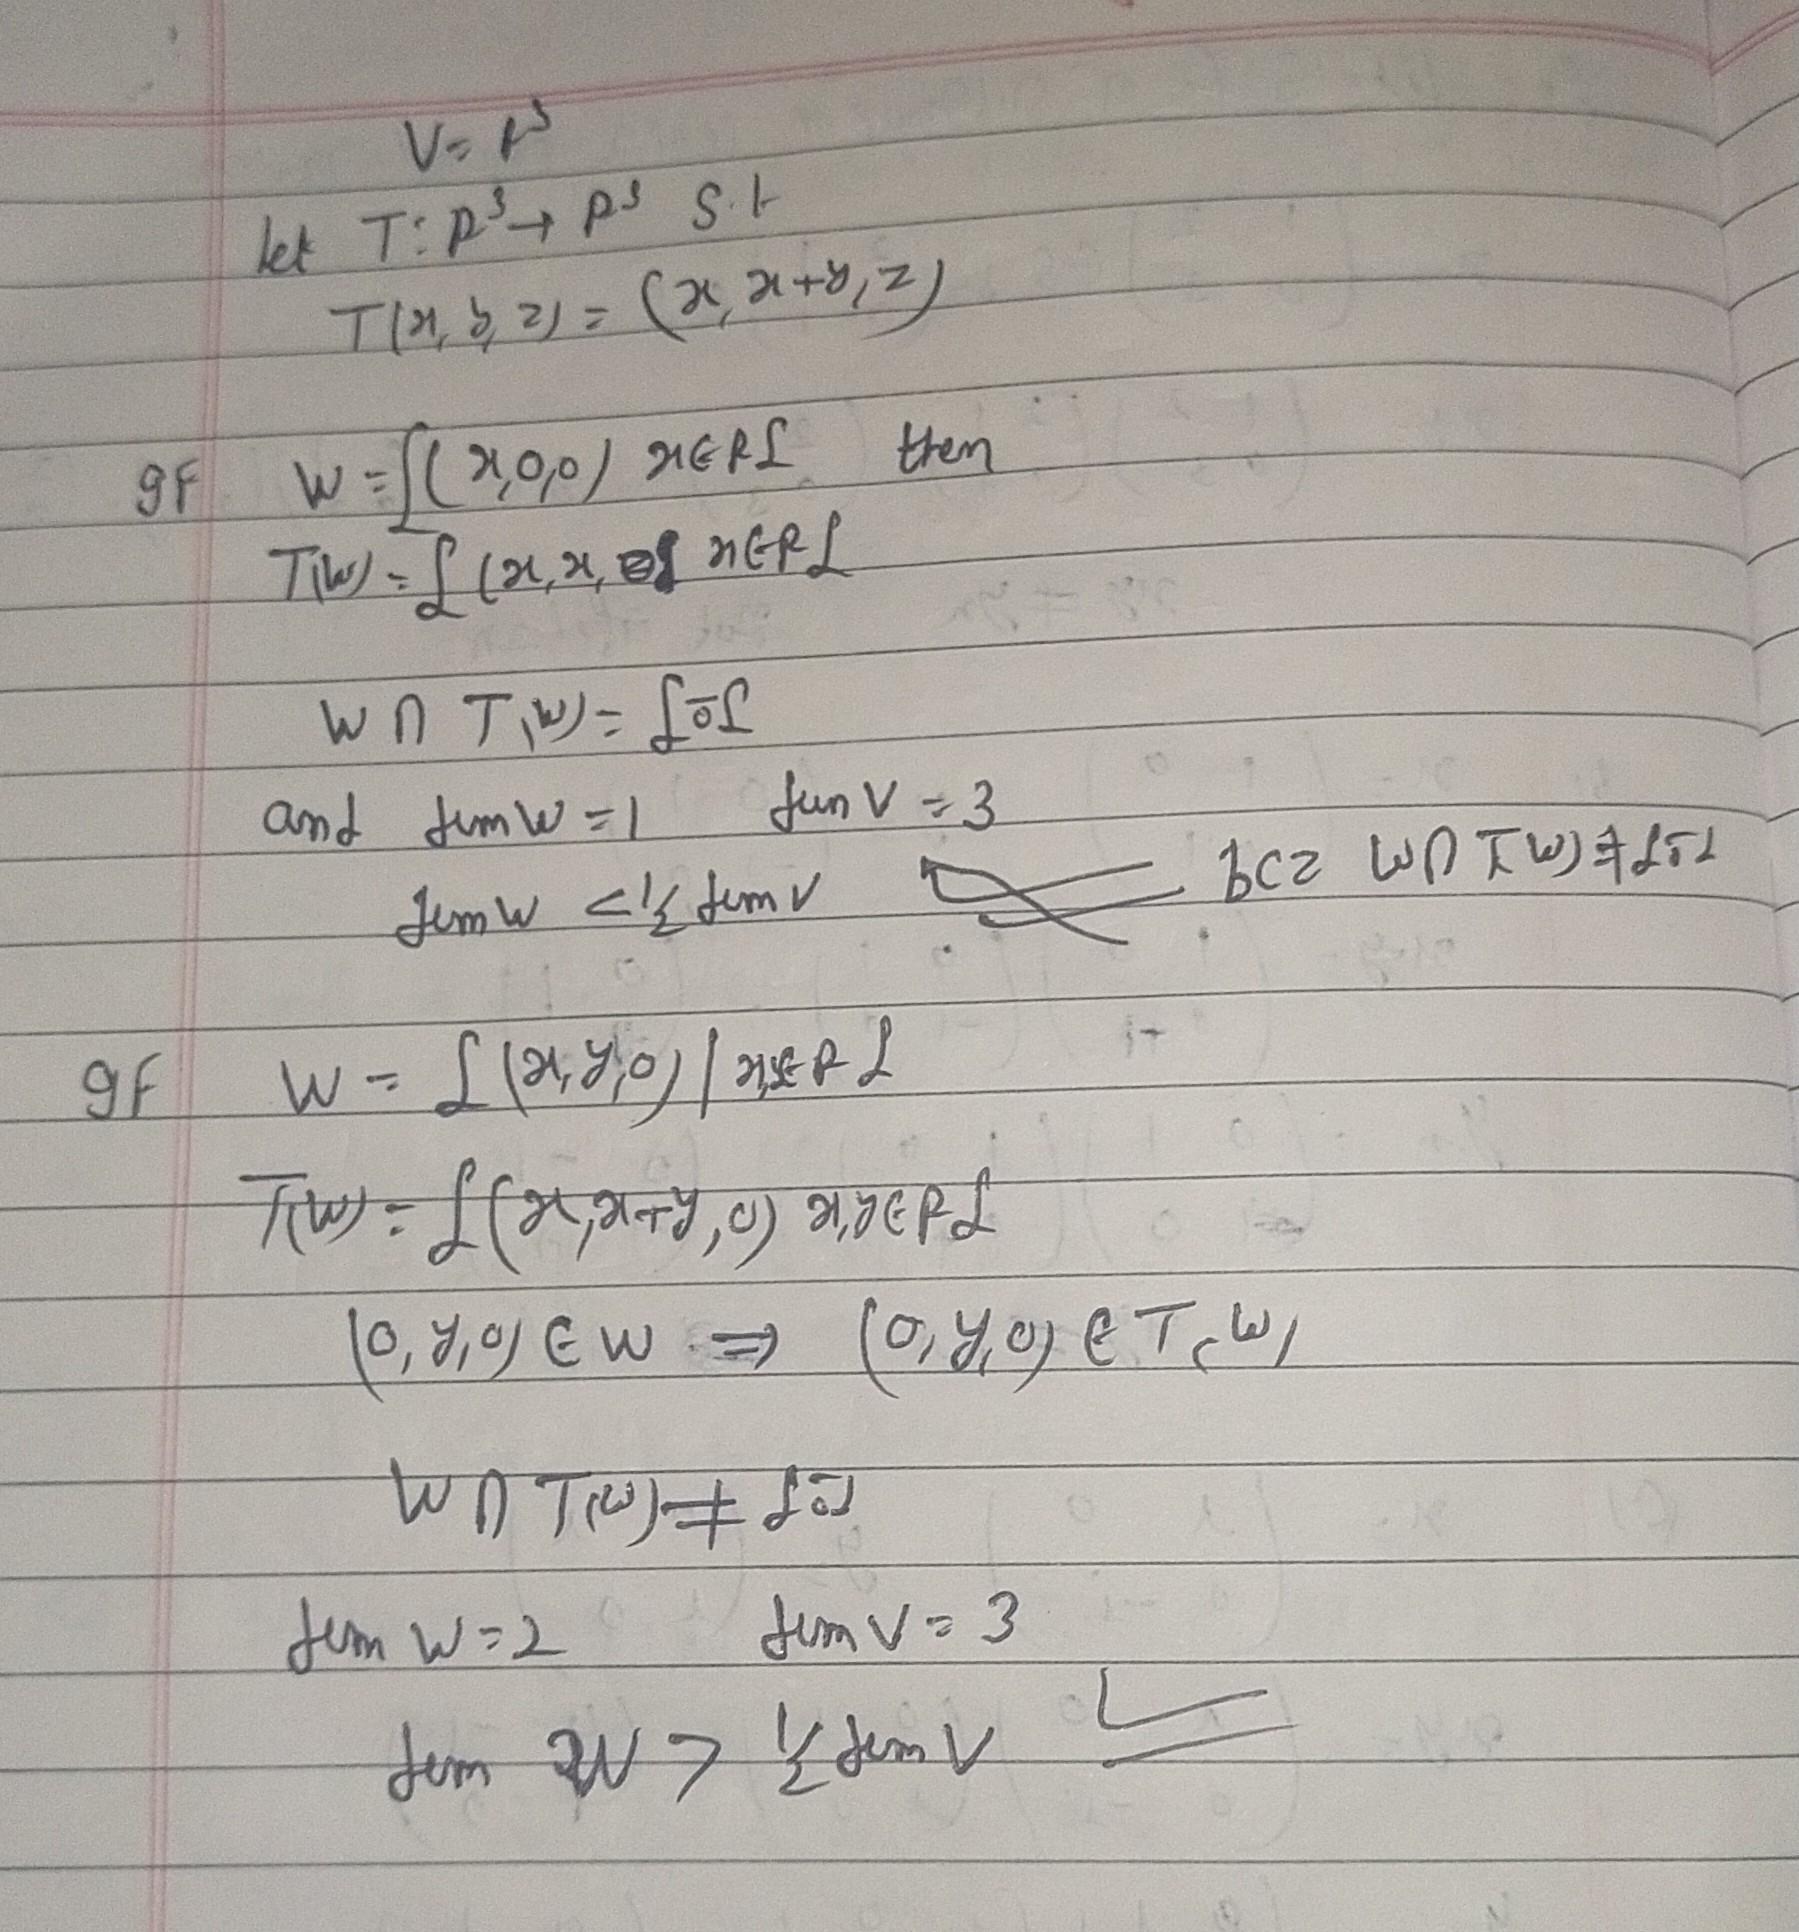 V = R³
let T: R³ → R³ s.t
T(x, y, z) = (x, x+y, z)
If W = {(x,0,0) x∈R} then
T(W) = {(x, x, 0) x∈R}
W ∩ T(W) = {0̄}
and dim W = 1 dim V = 3
dim W < 1/2 dim V bcz W ∩ T(W) ≠ {0̄}
If W = {(x,y,0) | x,y∈R}
T(W) = {(x, x+y, 0) x,y∈R}
(0,y,0) ∈ W ⇒ (0,y,0) ∈ T(W)
W ∩ T(W) ≠ {0̄}
dim W = 2 dim V = 3
dim W > 1/2 dim V